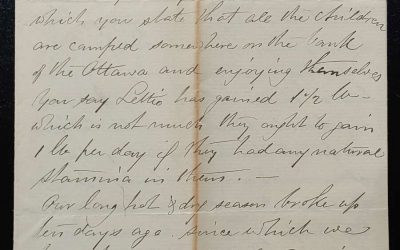 which you state that all the children
are camped somewhere on the bank
of the Ottawa and enjoying themselves
You say Lettie has gained 1½ lb
which is not much they ought to gain
1 lb per day if they had any natural
stamina in them. -
Our long hot & dry season broke up
ten days ago. since which we